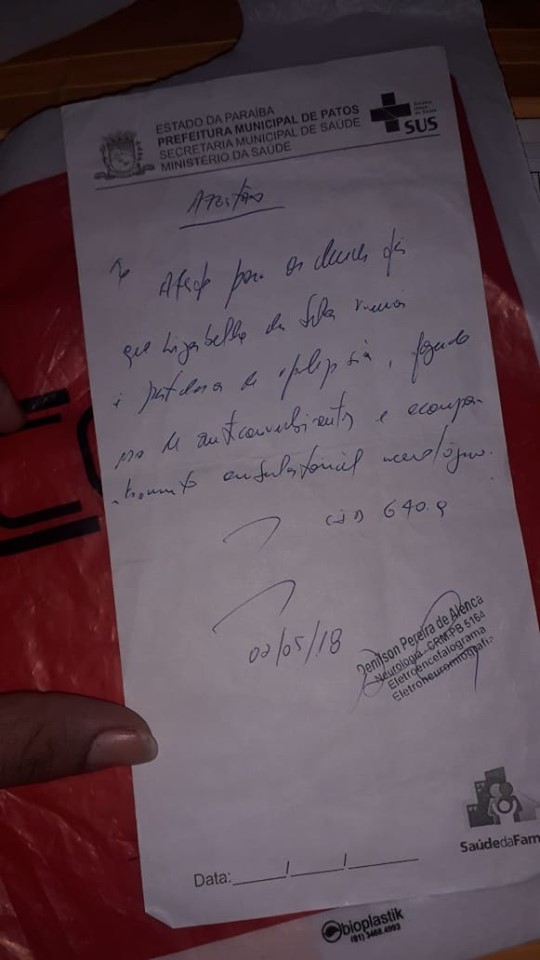 ESTADO DA PARAÍBA
PREFEITURA MUNICIPAL DE PATOS
SECRETARIA MUNICIPAL DE SAÚDE
MINISTÉRIO DA SAÚDE
SUS
Atesto para os devidos
que da Silva
é portadora de epilepsia, fazendo
uso de anticonvulsivantes e acompa-
nhamento ambulatorial neurológico.
CID G40.9
02/05/18
Denilson Pereira de Alenca
Neurologia - CRM-PB 5164
Eletroencefalograma
Eletroneuromiografia
SaúdedaFam
Data:___/___/___
bioplastik
(81) 3468.4993